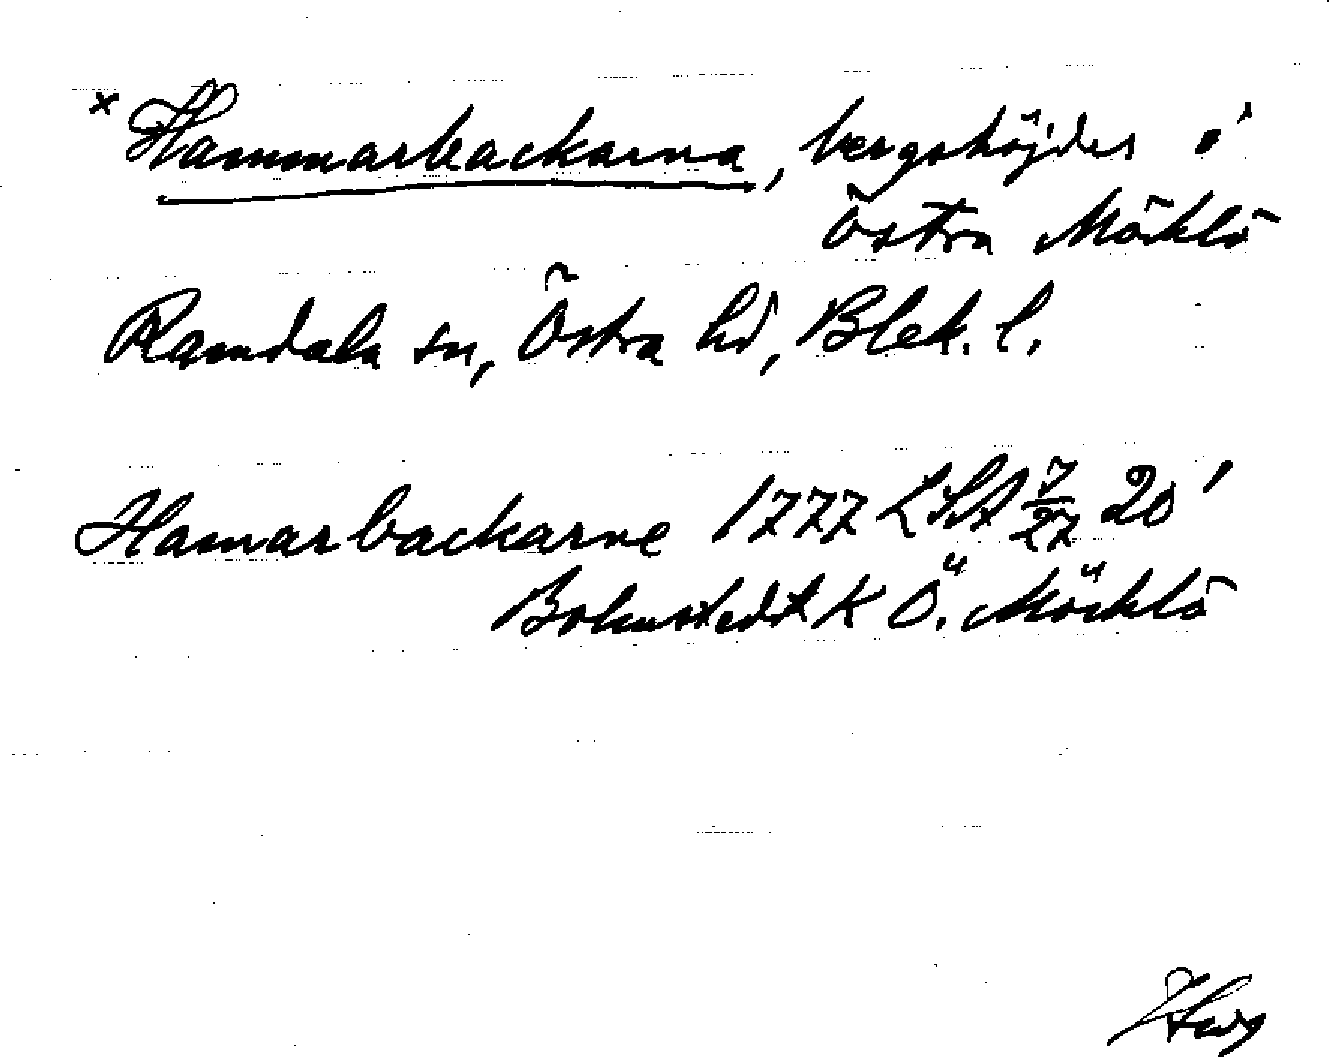 × Hammarbackarna, bergshöjder i
Östra Möcklö
Ramdala sn, Östra hd, Blek. l.
Hamarbackarne 1777 LSA 7/27 20'
K Ö. Möcklö